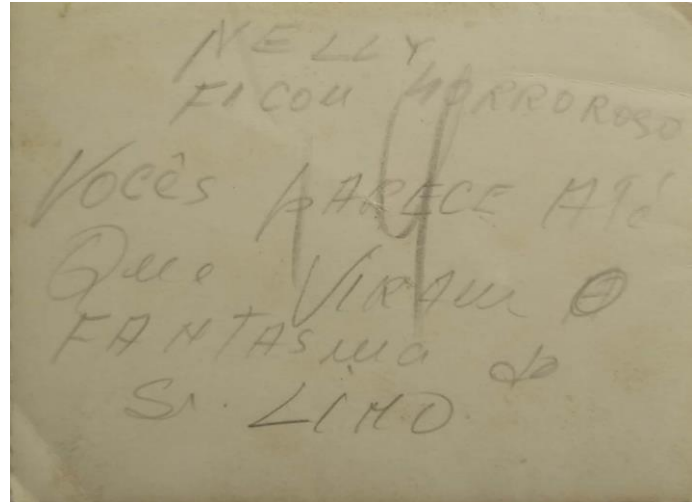 NELLY
FICOU HORROROSO
VOCÊS PARECE ATÉ
QUE VIRAM O
FANTASMA do
Sr. LINO.